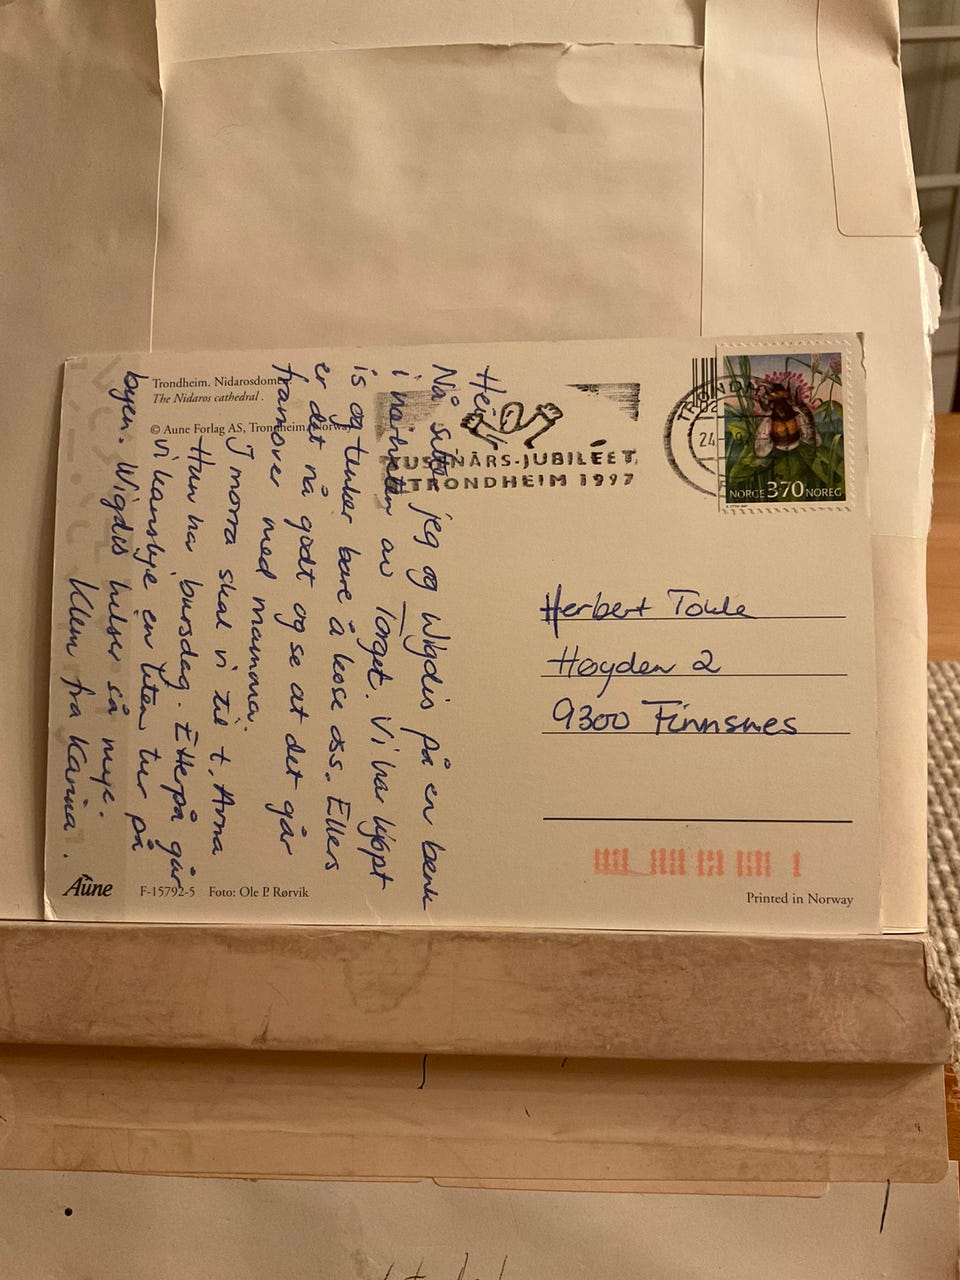 Trondheim. Nidarosdomen.
The Nidaros cathedral.
© Aune Forlag AS, Trondheim, Norway
Hei!
Nå sitter jeg og Wigdis på en benk
i nærheten av Torget. Vi har kjøpt
is og tenker bare å kose oss. Ellers
er det nå godt og se at det går
framover med mamma.
I morra skal vi til t. Anna
Hun har bursdag. Etterpå går
vi kanskje en liten tur på
byen. Wigdis helser så mye.
Klem fra Karina.
TUSENÅRS-JUBILÉET
TRONDHEIM 1997
TRONDH
24
NORGE 370 NOREG
Herbert
Høyden 2
9300 Finnsnes
Aune
F-15792-5 Foto: Ole P. Rørvik
Printed in Norway